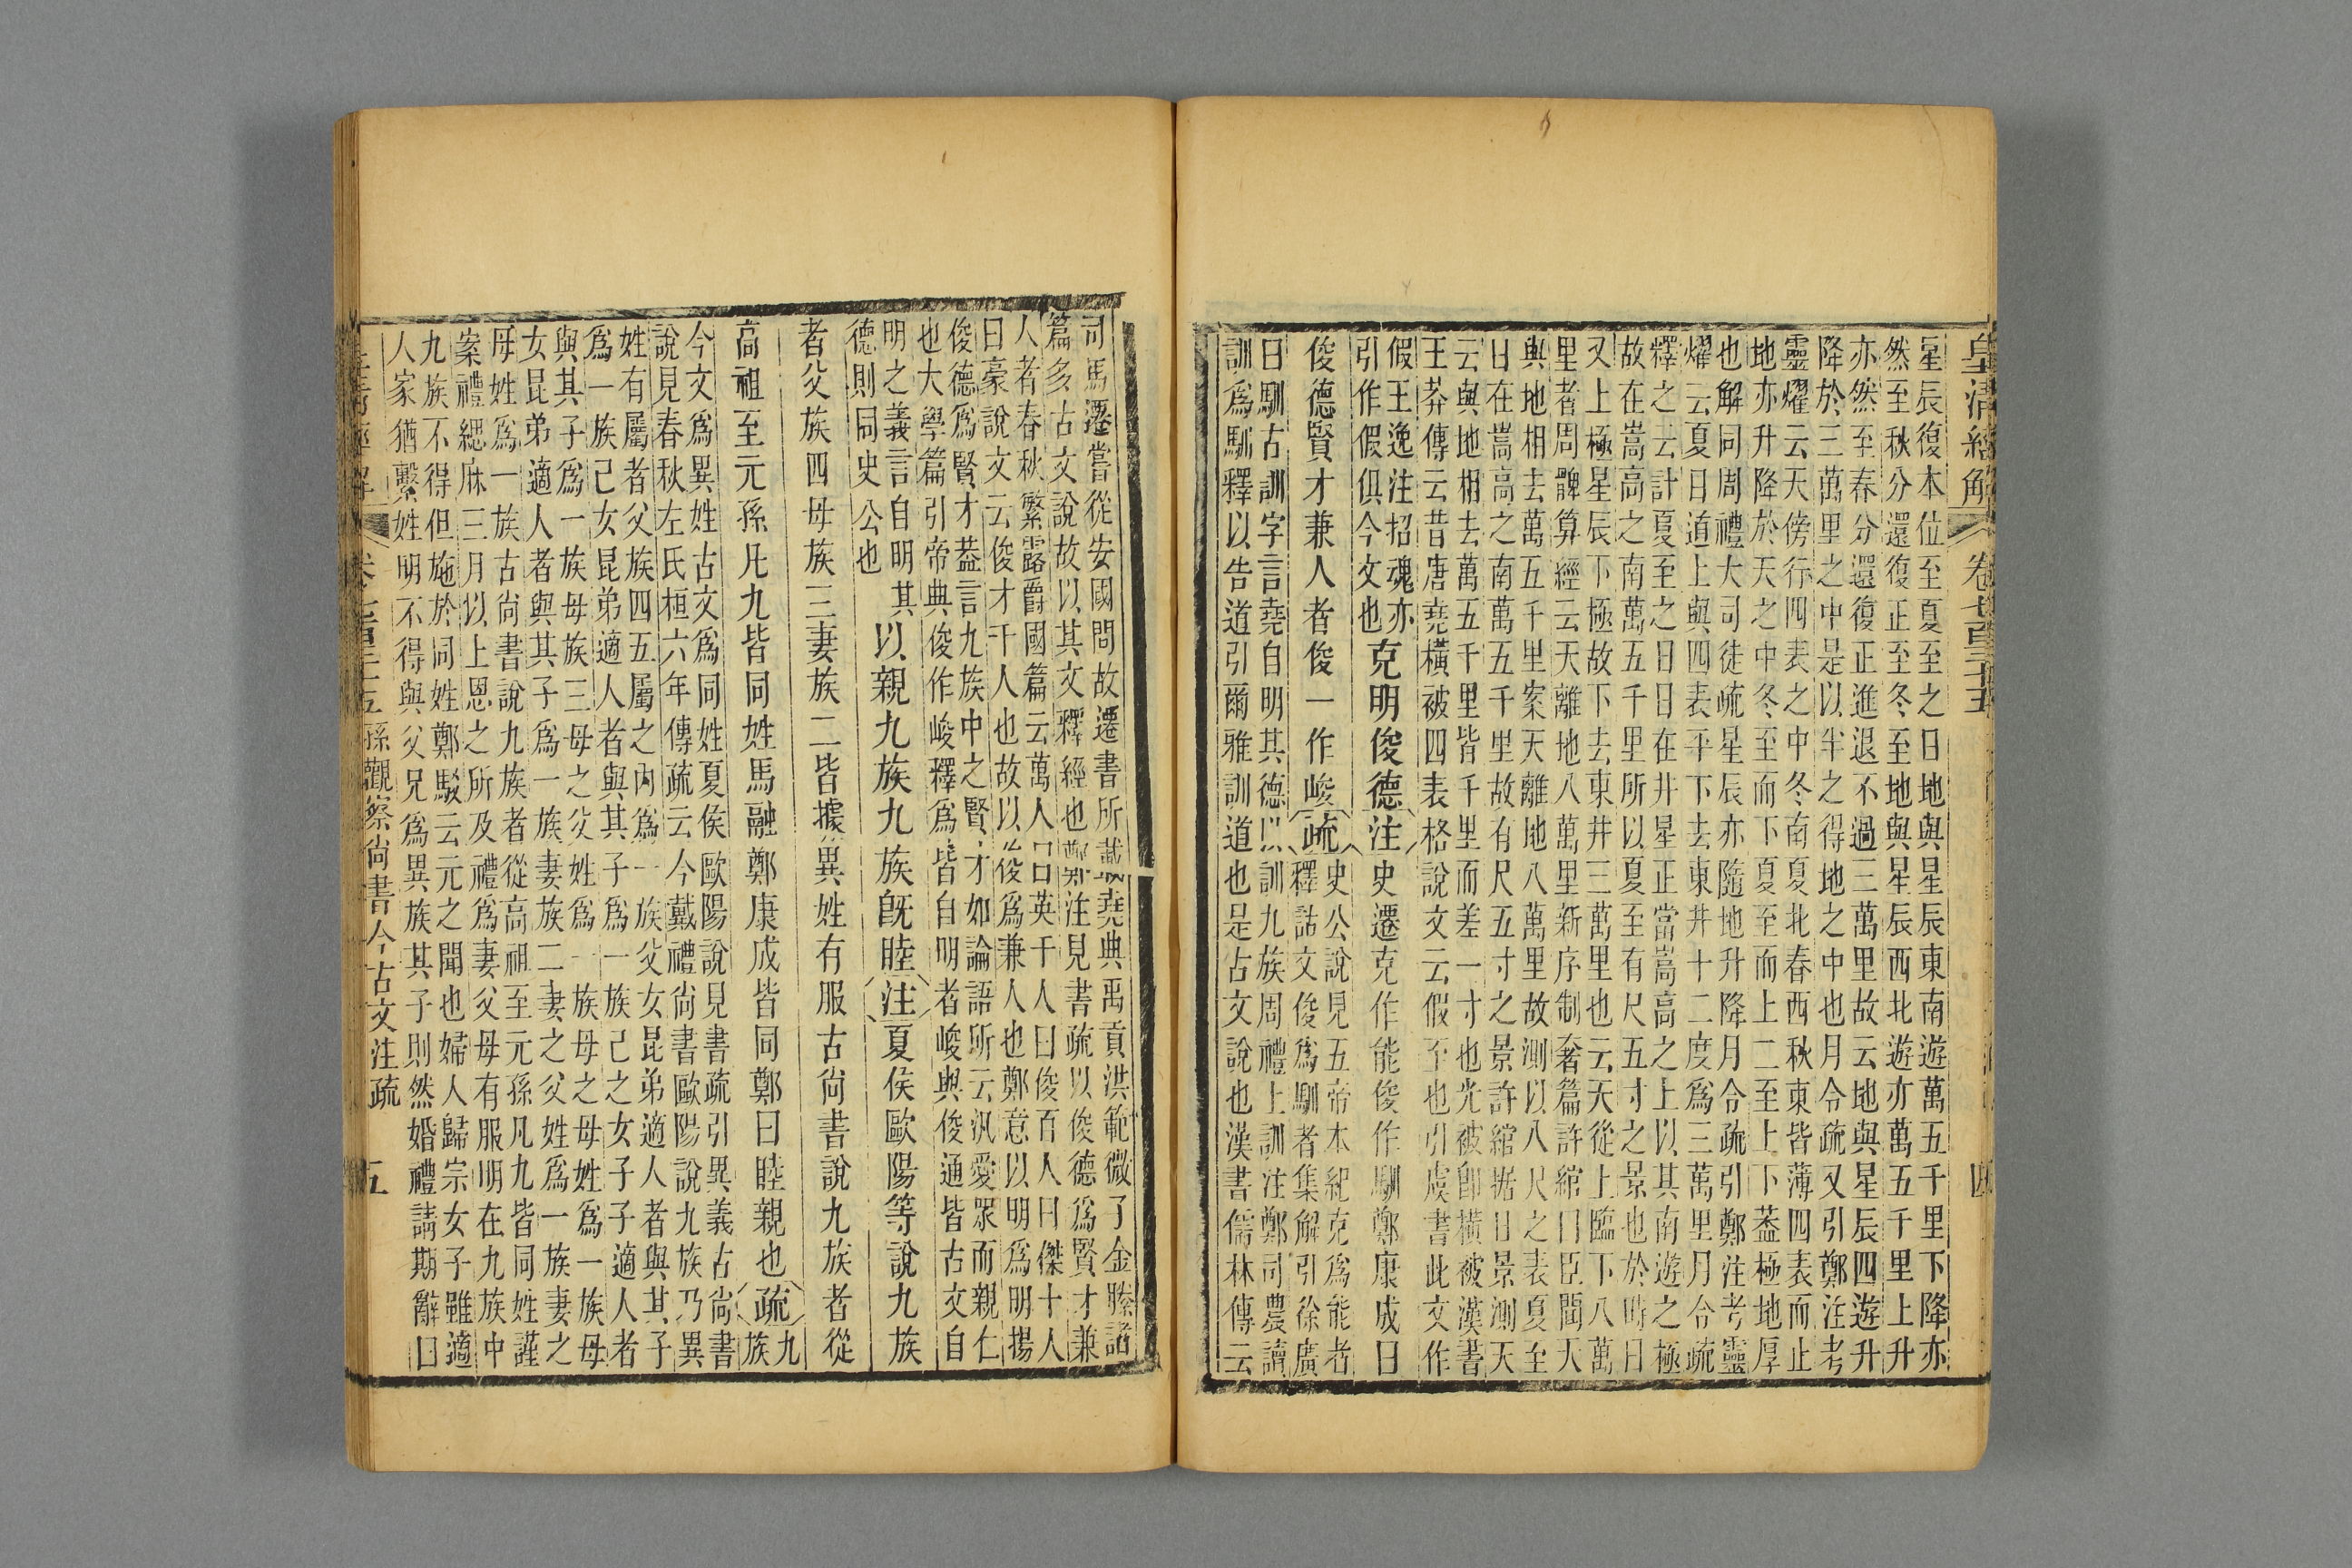 皇清經解
卷七百三十五
四
星辰復本位至夏至之日地與星辰東南遊萬五千里下降亦
然至秋分還復正至冬至地與星辰西北遊亦萬五千里上升
亦然至春分還復正進退不過三萬里故云地與星辰四遊升
降於三萬里之中是以半之得地之中也月令疏又引鄭注考
靈燿云天傍行四表之中冬南夏北春西秋東皆薄四表而止
地亦升降於天之中冬至而下夏至而上二至上下葢極地厚
也解同周禮大司徒疏星辰亦隨地升降月令疏引鄭注考靈
燿云夏日道上與四表平下去東井十二度爲三萬里月令疏
釋之云計夏至之日日在井星正當嵩高之上以其南遊之極
故在嵩高之南萬五千里所以夏至有尺五寸之景也於時日
又上極星辰下極故下去東井三萬里也云天從上臨下八萬
里者周髀算經云天離地八萬里新序制奢篇許綰曰臣聞天
與地相去萬五千里案天離地八萬里故測以八尺之表夏至
日在嵩高之南萬五千里故有尺五寸之景許綰据日景測天
云與地相去萬五千里皆千里而差一寸也光被卽橫被漢書
王莽傳云昔唐堯橫被四表格說文云假至也引虞書此文作
假王逸注招魂亦
引作假俱今文也
克明俊德注史遷克作能俊作馴鄭康成曰
俊德賢才兼人者俊一作峻疏
史公說見五帝本紀克爲能者
釋詁文俊爲馴者集解引徐廣
曰馴古訓字言堯自明其德以訓九族周禮土訓注鄭司農讀
訓爲馴釋以告道引爾雅訓道也是古文說也漢書儒林傳云
司馬遷嘗從安國問故遷書所載堯典禹貢洪範微子金縢諸
篇多古文說故以其文釋經也鄭注見書疏以俊德爲賢才兼
人者春秋繁露爵國篇云萬人曰英千人曰俊百人曰傑十人
曰豪說文云俊才千人也故以俊爲兼人也鄭意以明爲明揚
俊德爲賢才葢言九族中之賢才如論語所云汎愛眾而親仁
也大學篇引帝典俊作峻釋爲皆自明者峻與俊通皆古文自
明之義言自明其
德則同史公也
以親九族九族旣睦注夏侯歐陽等說九族
者父族四母族三妻族二皆據異姓有服古尙書說九族者從
高祖至元孫凡九皆同姓馬融鄭康成皆同鄭曰睦親也疏
九
族
今文爲異姓古文爲同姓夏侯歐陽說見書疏引異義古尙書
說見春秋左氏桓六年傳疏云今戴禮尙書歐陽說九族乃異
姓有屬者父族四五屬之內爲一族父女昆弟適人者與其子
爲一族己女昆弟適人者與其子爲一族己之女子子適人者
與其子爲一族母族三母之父姓爲一族母之母姓爲一族母
女昆弟適人者與其子爲一族妻族二妻之父姓爲一族妻之
母姓爲一族古尙書說九族者從高祖至元孫凡九皆同姓謹
案禮緦麻三月以上恩之所及禮爲妻父母有服明在九族中
九族不得但施於同姓鄭駁云元之聞也婦人歸宗女子雖適
人家猶繫姓明不得與父兄爲異族其子則然婚禮請期辭曰
孫觀察尙書今古文注疏
五